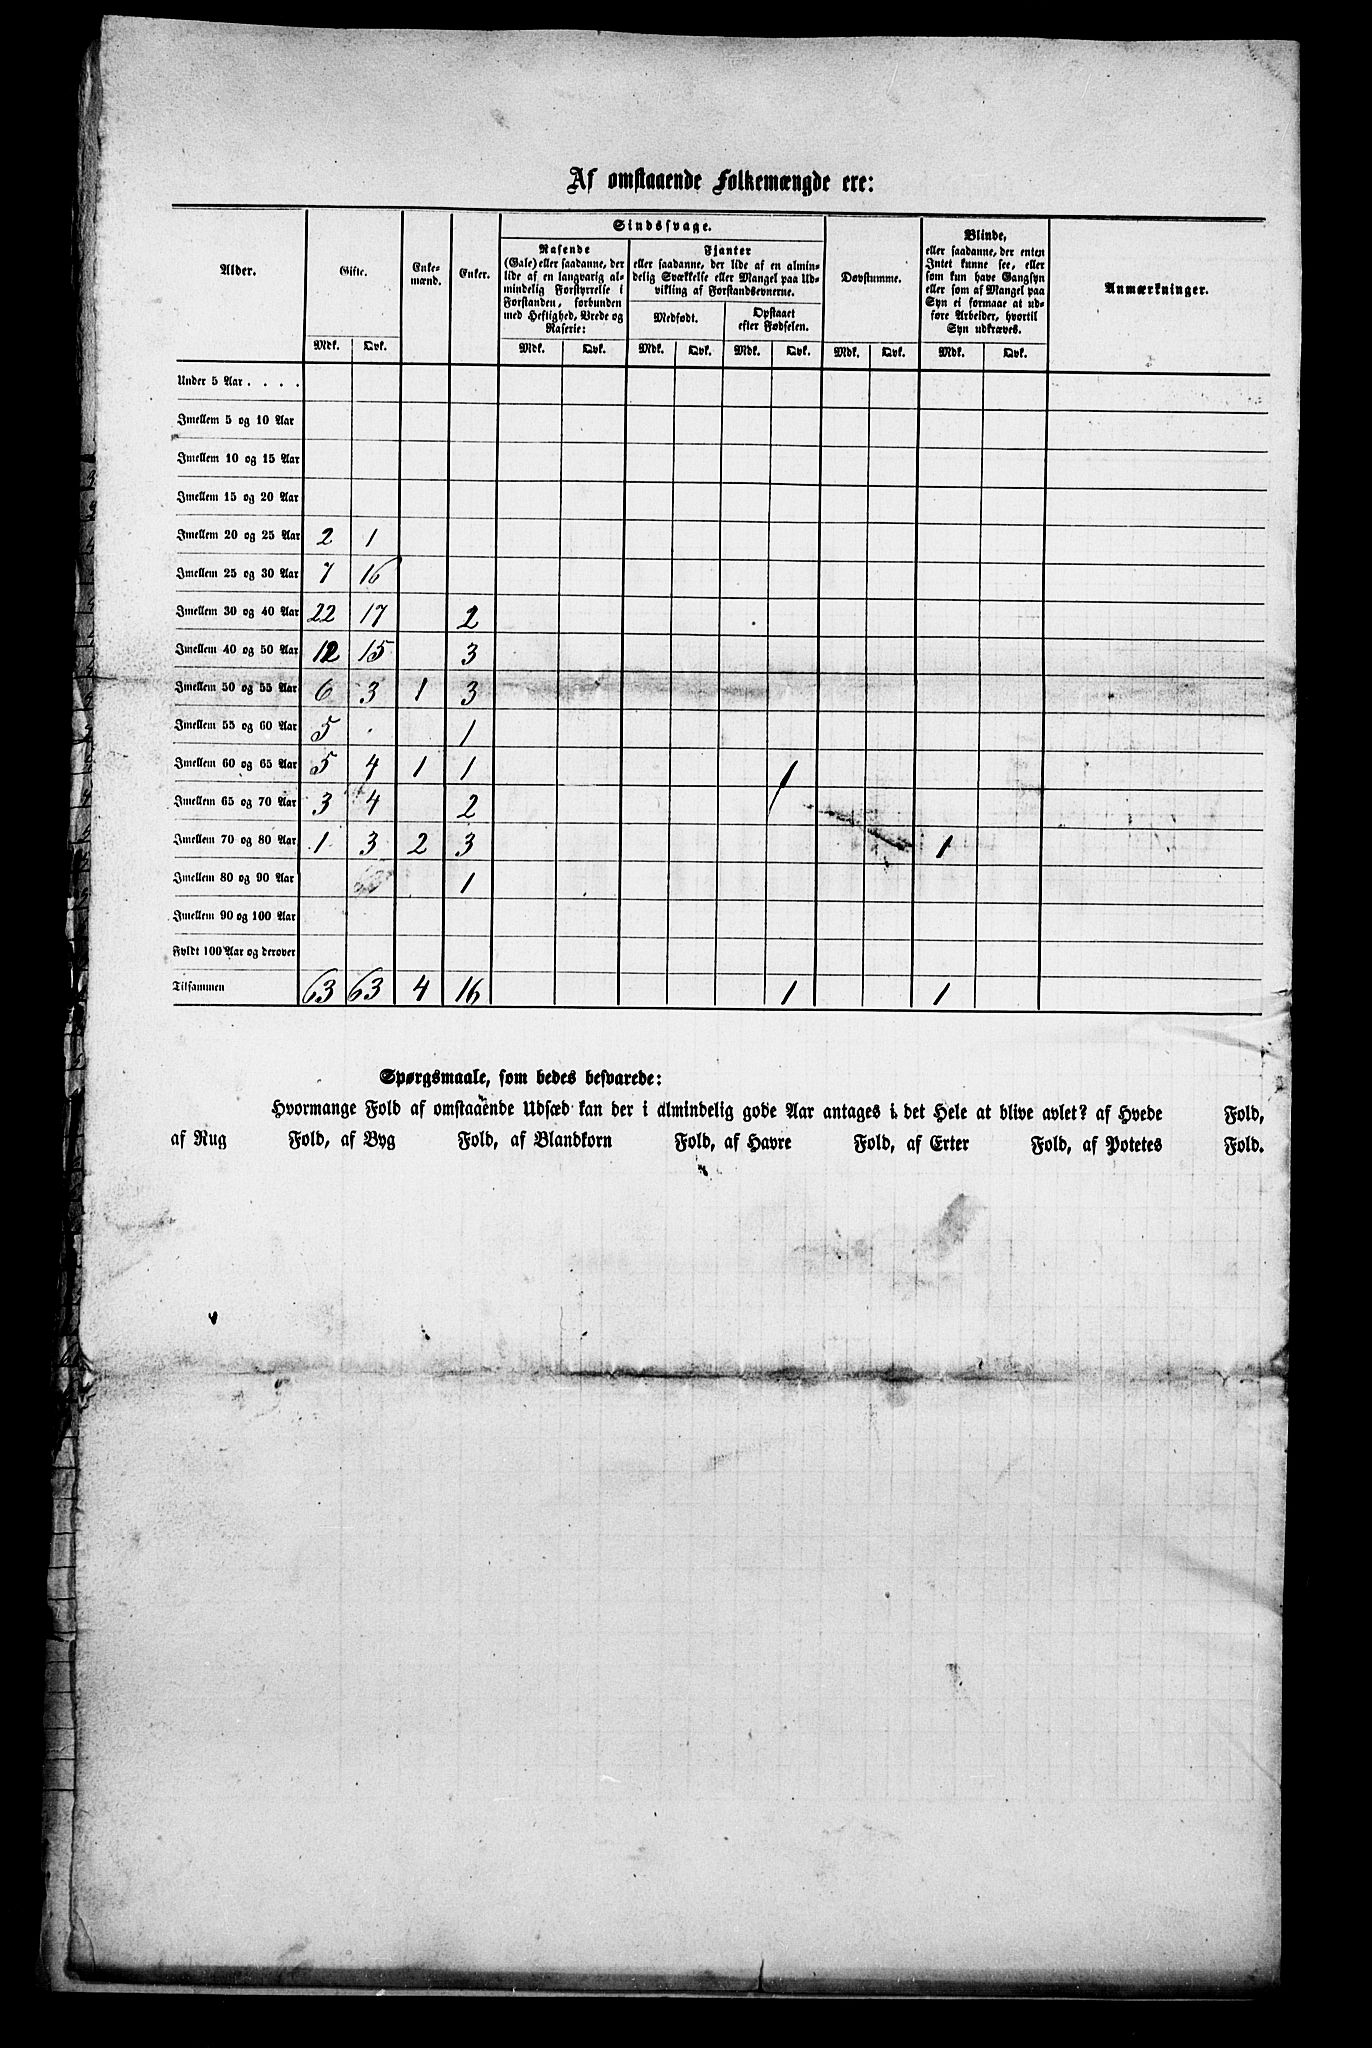 Af omstaaende Folkemængde ere:
Alder. Gifte. Enke- Enker. Sindssvage. Døvstumme. Blinde, Anmærkninger.
mænd.
Rasende Fjanter
(Gale) eller saadanne, der eller saadanne, der lide af en almin-
lide af en langvarig al- delig Svækkelse eller Mangel paa Ud-
mindelig Forstyrrelse i vikling af Forstandsevnerne.
Forstanden, forbunden
med Heftighed, Vrede og Medfødt. Opstaaet
Raserie: efter Fødselen.
eller saadanne, der enten
Intet kunne see, eller
som kun have Gangsyn
eller som af Mangel paa
Syn ei formaae at ud-
føre Arbeider, hvortil
Syn udkræves.
Mdk. Qvk. Mdk. Qvk. Mdk. Qvk. Mdk. Qvk. Mdk. Qvk. Mdk. Qvk.
Under 5 Aar . . . .
Imellem 5 og 10 Aar
Imellem 10 og 15 Aar
Imellem 15 og 20 Aar
Imellem 20 og 25 Aar 2 1
Imellem 25 og 30 Aar 7 16
Imellem 30 og 40 Aar 22 17 2
Imellem 40 og 50 Aar 12 15 3
Imellem 50 og 55 Aar 6 3 1 3
Imellem 55 og 60 Aar 5 . 1
Imellem 60 og 65 Aar 5 4 1 1 1
Imellem 65 og 70 Aar 3 4 2
Imellem 70 og 80 Aar 1 3 2 3 1
Imellem 80 og 90 Aar 1
Imellem 90 og 100 Aar
Fyldt 100 Aar og derover
Tilsammen 63 63 4 16 1 1
Spørgsmaale, som bedes besvarede:
Hvormange Fold af omstaaende Udsæd kan der i almindelig gode Aar antages i det Hele at blive avlet? af Hvede Fold,
af Rug Fold, af Byg Fold, af Blandkorn Fold, af Havre Fold, af Erter Fold, af Potetes Fold.